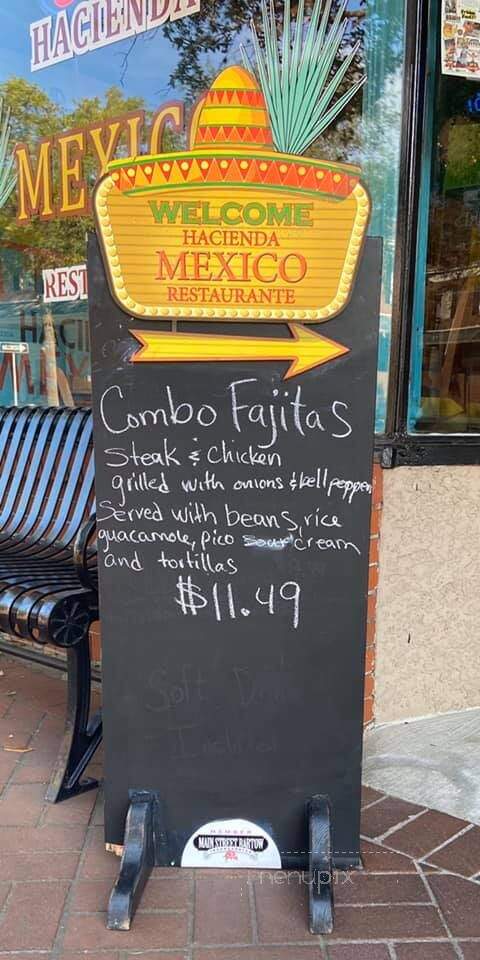 HACIENDA
MEXIC
REST
HACI
WELCOME
HACIENDA
MEXICO
RESTAURANTE
Combo Fajitas
Steak & Chicken
grilled with onions & bell peppers
Served with beans, rice
guacamole, pico sour cream
and tortillas
$11.49
Soft
MEMBER
MAIN STREET BARTOW
menupix